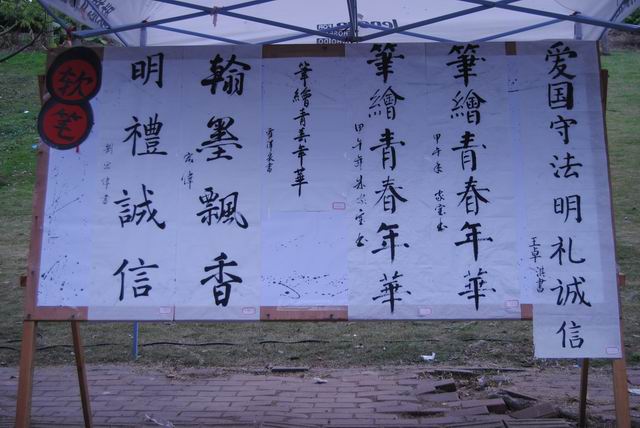 软笔
明禮誠信
翰墨飄香
宏偉
筆繪青春年華
筆繪青春年華
甲午年
筆繪青春年華
甲午年
爱国守法明礼诚信
王卓洪書